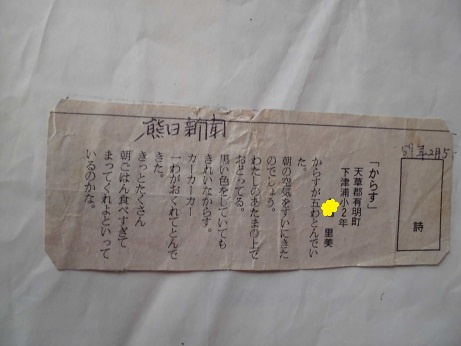 熊日新聞
59年2月5
詩
「からす」
天草郡有明町
下津浦小2年
里美
からすが五わとんでい
た。
朝の空気をすいにきた
のでしょう。
わたしのあたまの上で
おどってる。
黒い色をしていても
きれいなからす。
カーカーカー
一わがおくれてとんで
きた。
きっとたくさん
朝ごはん食べすぎて
まってくれよといって
いるのかな。